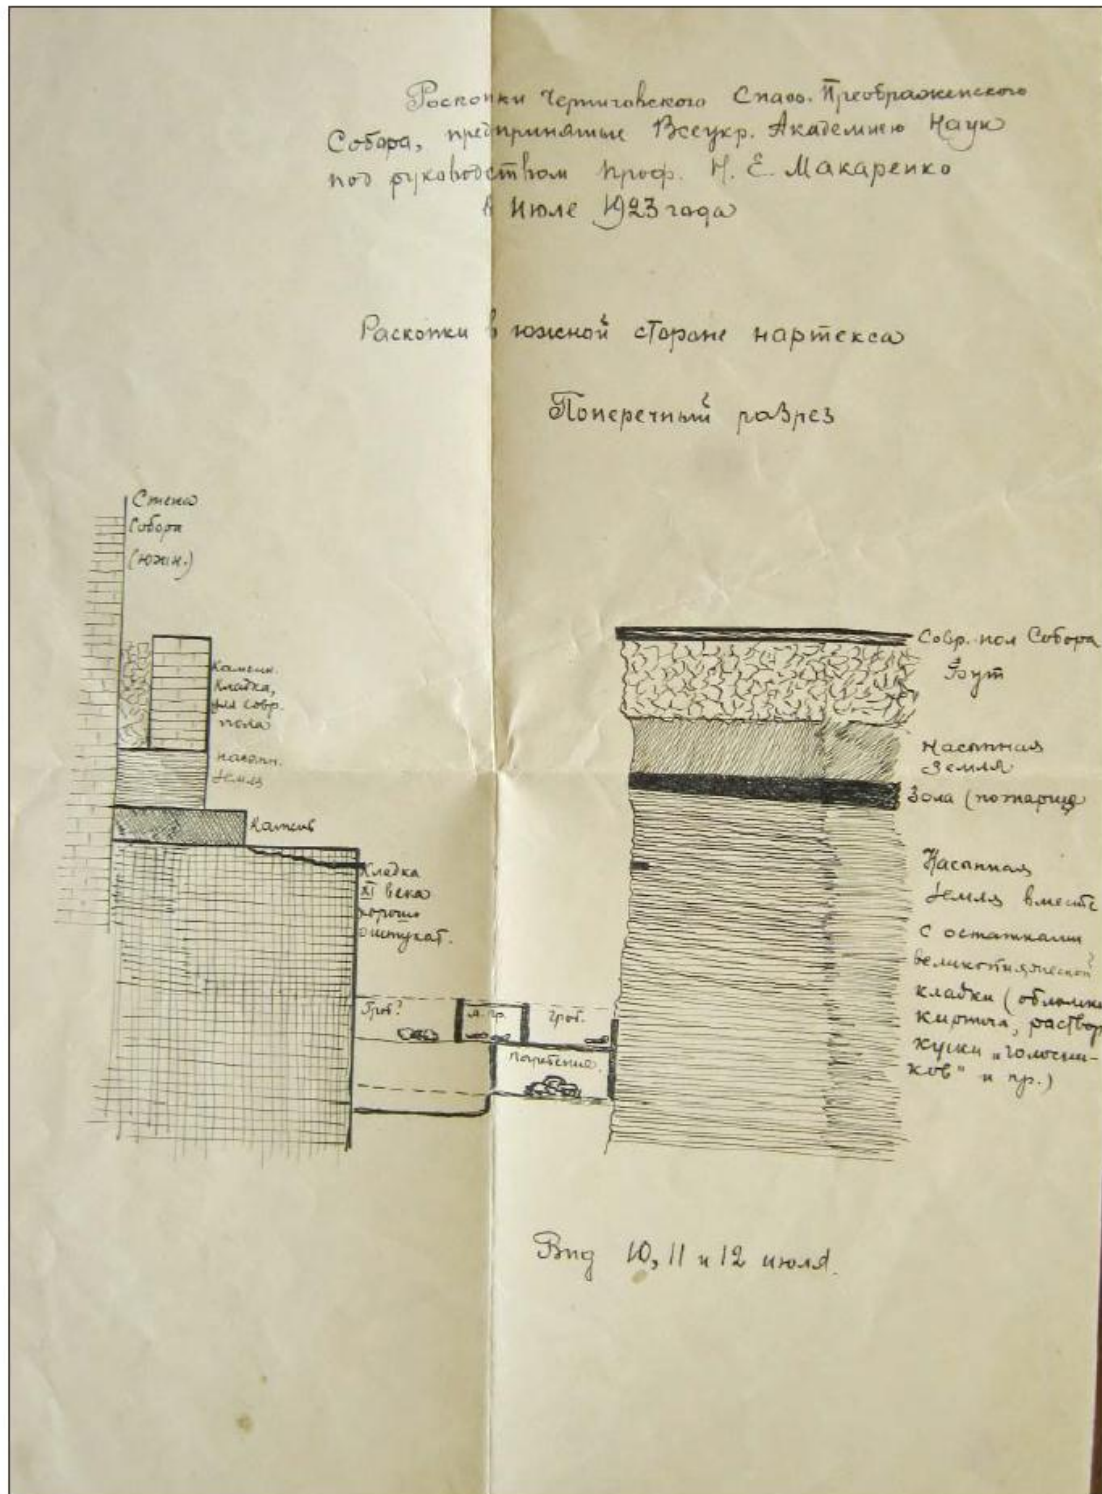 Роскопки Черниговского Спасо-Преображенского
Собора, предпринятые Всеукр. Академиею Наук
под руководством проф. Н. Е. Макаренко
в Июле 1923 года
Раскопки в южной стороне нартекса
Поперечный разрез
Стена
Собора
(южн.)
Каменн.
кладка,
для совр.
пола
насыпн.
земля
Камень
Кладка
XI века
хорошо
оштукат.
Гроб?
м. гр.
гроб.
погребение
Совр. пол Собора
Бут
Насыпная
Земля
Зола (пожарище
Насыпная
земля вместе
с остатками
великокняжеской
кладки (обломки
кирпича, раствор
куски „голосни-
ков" и пр.)
Вид 10, 11 и 12 июля.